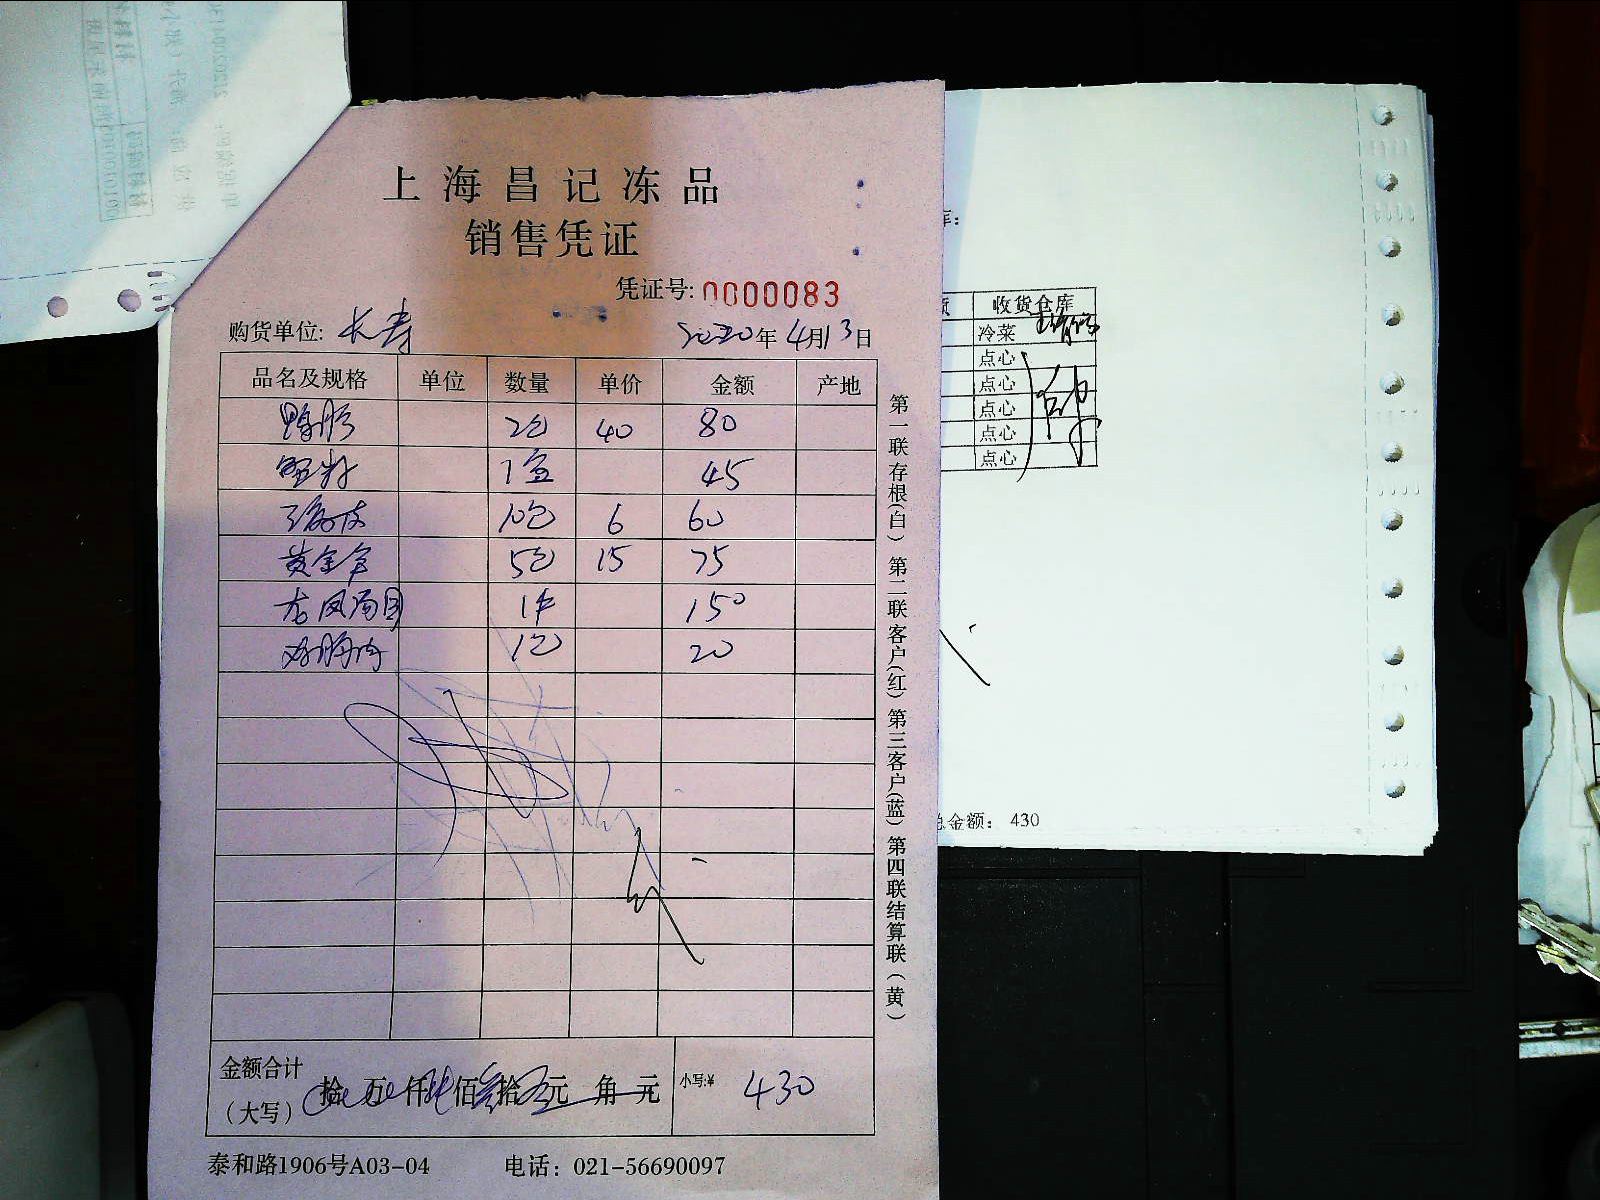 上海昌记冻品
销售凭证
凭证号: 0000083
购货单位: 长寿 2020年4月13日
品名及规格 单位 数量 单价 金额 产地
鸭肠 2包 40 80
1盒 45
10包 6 60
黄金 5包 15 75
龙凤汤团 1件 150
鸡胸肉 1包 20
第一联存根(白) 第二联客户(红) 第三客户(蓝) 第四联结算联(黄)
金额合计
(大写)
拾 万 仟 佰 拾 元 角 元
小写:¥ 430
泰和路1906号A03-04 电话: 021-56690097
库:
收货仓库
冷菜
点心
点心
点心
点心
点心
总金额: 430